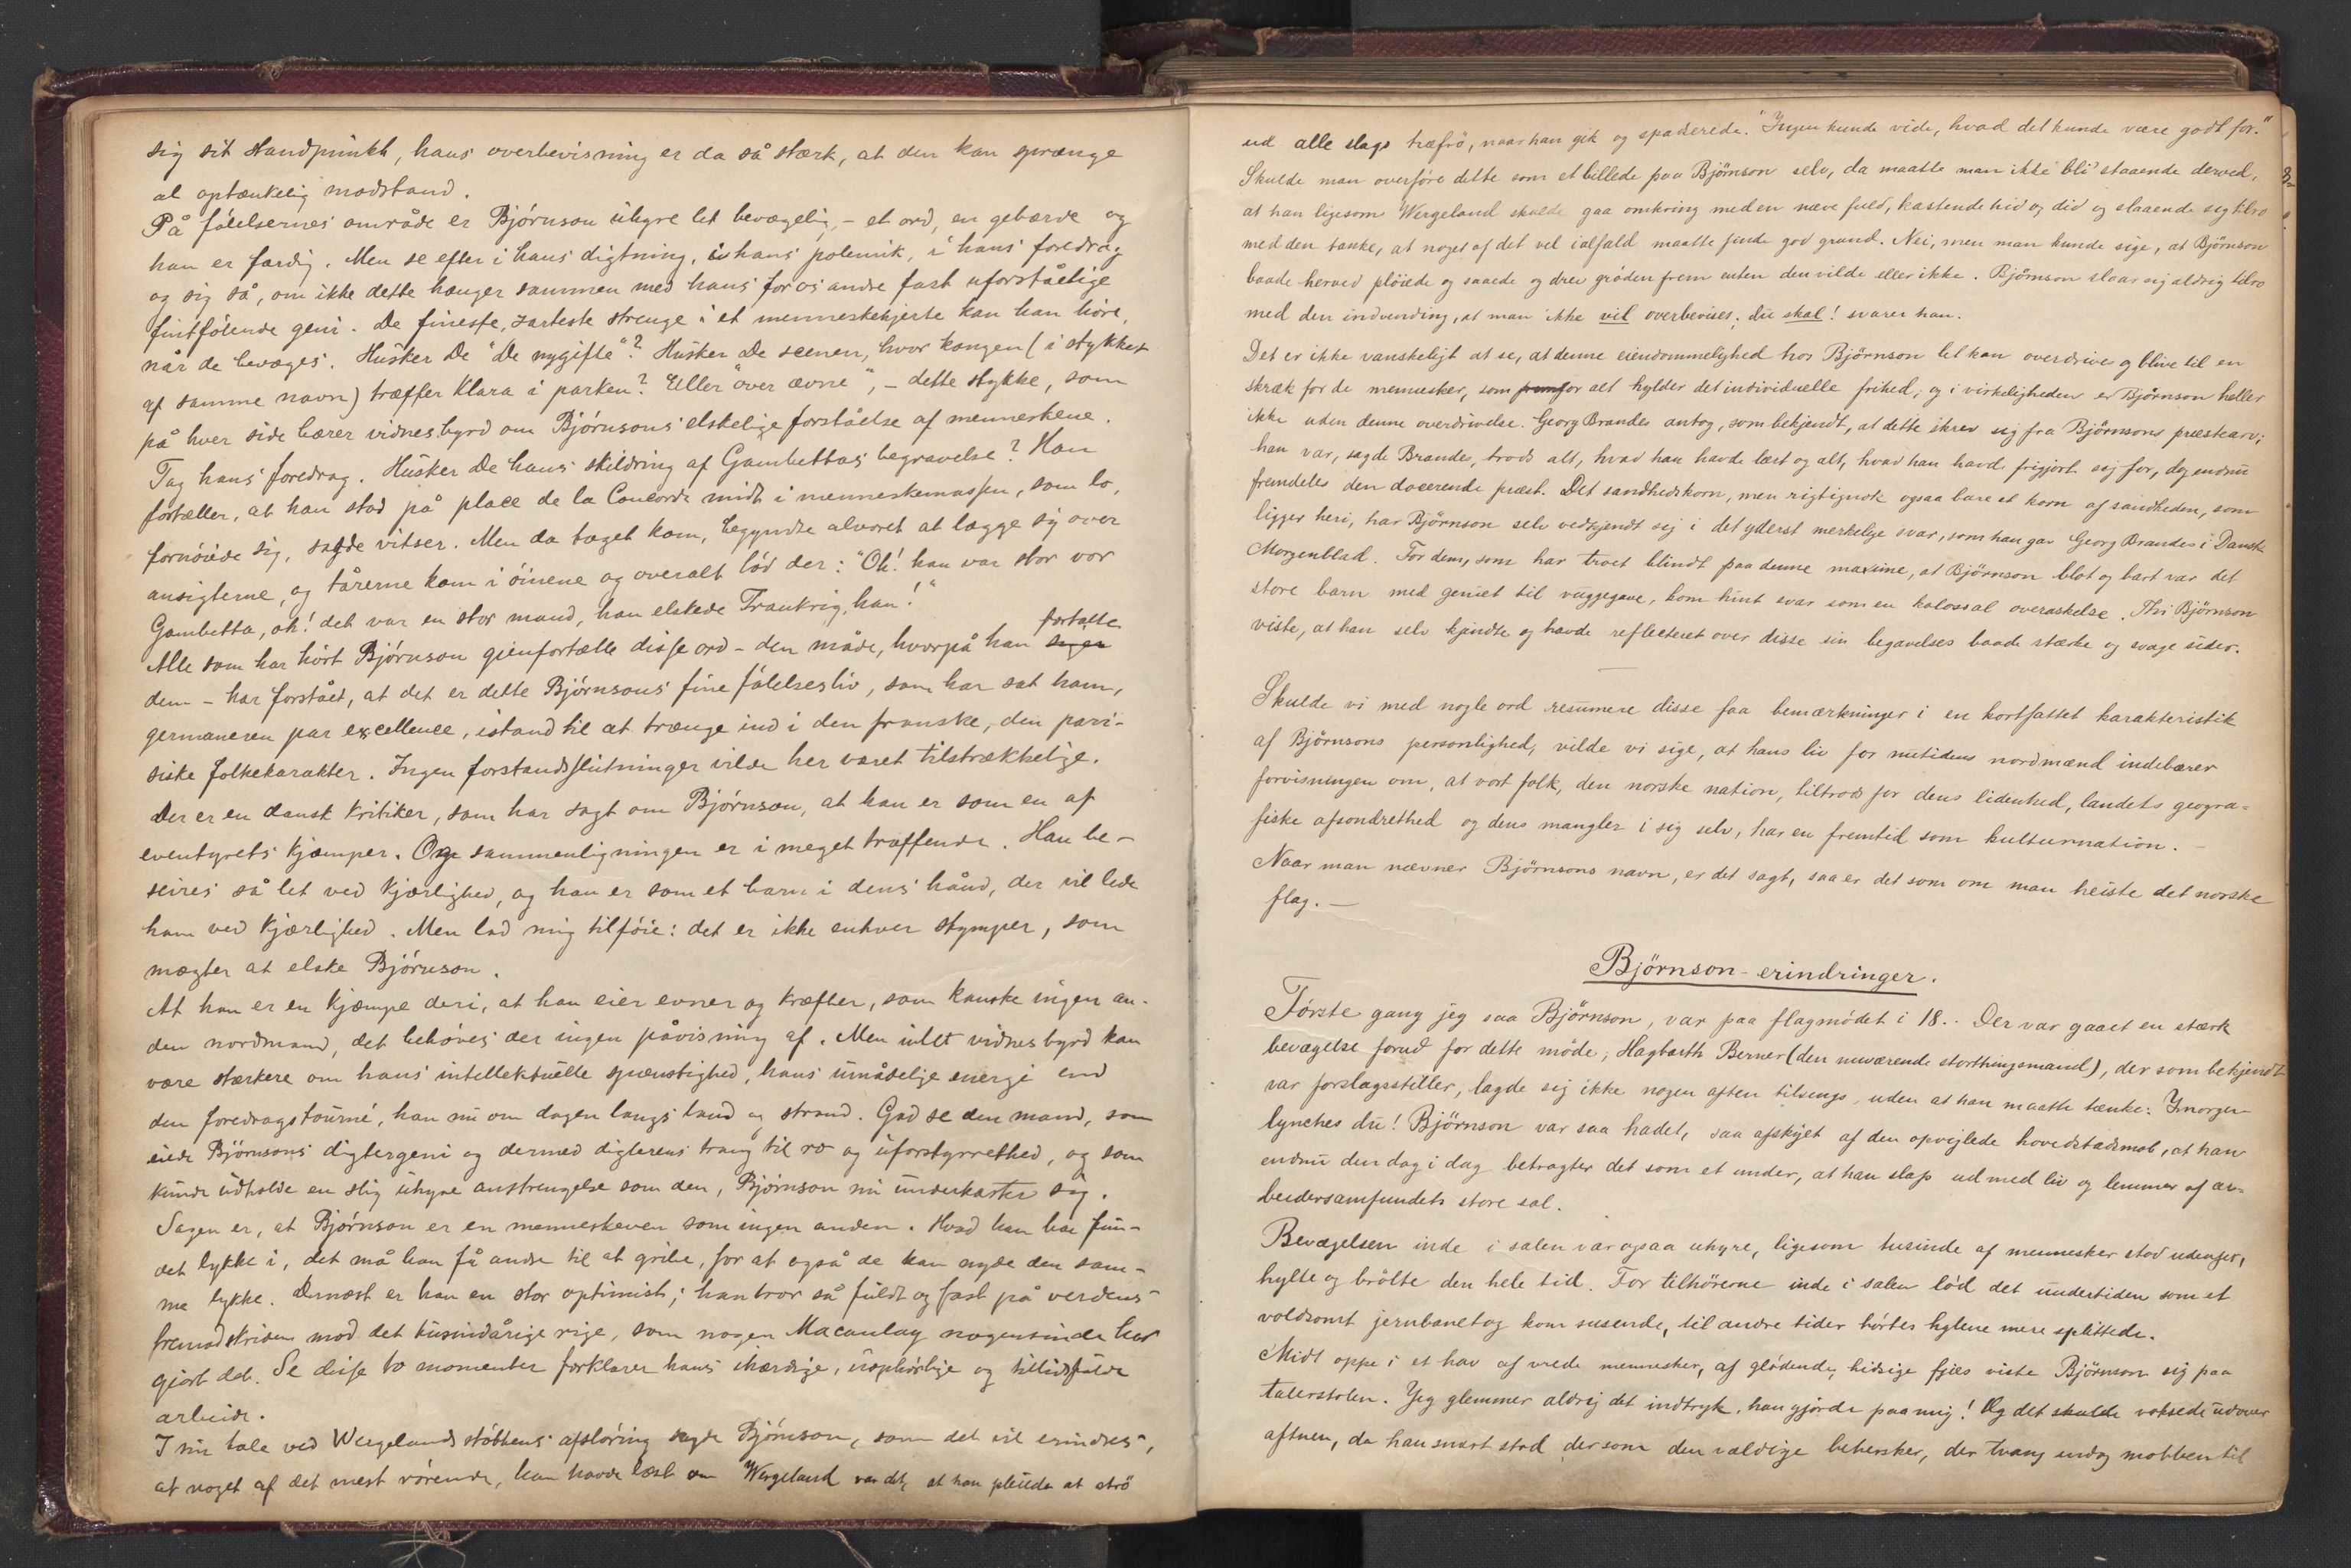 sig sit standpunkt, hans overbevisning er da så stærk, at den kan sprænge
al optænkelig modstand.
På følelsernes område er Bjørnson uhyre let bevægelig, – et ord, en gebærde og
han er færdig. Men se efter i hans digtning, i hans polemik, i hans foredrag
og sig så, om ikke dette hænger sammen med hans for os andre fast uforståelige
fintfølende geni. De fineste, zarteste strenge i et menneskehjerte kan han høre,
når de bevæges. Husker De "De nygifte"? Husker De scenen, hvor kongen (i stykket
af samme navn) træffer Klara i parken? Eller "over ævne", – dette stykke, som
på hver side bærer vidnesbyrd om Bjørnsons elskelige forståelse af menneskene.
Tag hans foredrag. Husker De hans skildring af Gambettas begravelse? Han
fortæller, at han stod på place de la Concorde midt i menneskemassen, som lo,
fornøiede sig, sagde vitser. Men da toget kom, begyndte alvoret at lægge sig over
ansigterne, og tårerne kom i øinene og overalt lød der: "Oh! han var stor vor
Gambetta, oh! det var en stor mand, han elskede Frankrig, han!"
Alle som har hørt Bjørnson gienfortælle disse ord – den måde, hvorpå han siger fortalte
dem – har forstået, at det er dette Bjørnsons fine følelsesliv, som har sat ham,
germaneren par excellence, istand til at trænge ind i den franske, den pari-
siske folkekarakter. Ingen forstandsslutninger vilde her været tilstrækkelige.
Der er en dansk kritiker, som har sagt om Bjørnson, at han er som en af
eventyrets kjæmper. Og sammenligningen er i meget træffende. Han be-
seires så let ved kjærlighed, og han er som et barn i dens hånd, der vil lede
ham ved kjærlighed. Men lad mig tilføie: det er ikke enhver stymper, som
mægter at elske Bjørnson.
At han er en kjæmpe deri, at han eier evner og kræfter, som kanske ingen an-
den nordmand, det behøves der ingen påvisning af. Men intet vidnesbyrd kan
være stærkere om hans intellektuelle spænstighed, hans umådelige energi end
den foredragstourné, han nu om dagen langs land og strand. Gad se den mand, som
eiede Bjørnsons digtergeni og dermed digterens trang til ro og uforstyrrethed, og som
kunde udholde en slig uhyre anstrengelse som den, Bjørnson nu underkaster sig.
Sagen er, at Bjørnson er en menneskeven som ingen anden. Hvad han har fun-
det lykke i, det må han få andre til at gribe, for at også de kan nyde den sam-
me lykke. Dernæst er han en stor optimist; han tror så fuldt og fast på verdens
fremadskriden mod det tusindårige rige, som nogen Macaulay nogensinde har
gjort det. Se disse to momenter forklarer hans ihærdige, uophørlige og tillidsfulde
arbeide.
I sin tale ved Wergelandsstøttens afsløring sagde Bjørnson, som det vil erindres,
at noget af det mest rørende, han havde læst om Wergeland var det, at han pleiede at strö
ud alle slags træfrö, naar han gik og spadserede. "Ingen kunde vide, hvad det kunde være godt for."
Skulde man overføre dette som et billede paa Björnson selv, da maatte man ikke bli' staaende derved,
at han ligesom Wergeland skulde gaa omkring med en næve fuld, kastende hid og did og slaaende sig tilro
med den tanke, at noget af det vel ialfald maatte finde god grund. Nei, men man kunde sige, at Björnson
baade herved plöiede og saaede og drev gröden frem enten den vilde eller ikke. Björnson slaar sig aldrig tilro
med den indvending, at man ikke vil overbevises; du skal! svarer han.
Det er ikke vanskeligt at se, at denne eiendommelighed hos Björnson let kan overdrives og blive til en
skræk for de mennesker, som fremfor alt hylder det individuelle frihed; og i virkeligheden er Björnson heller
ikke uden denne overdrivelse. Georg Brandes antog, som bekjendt, at dette skrev sig fra Björnsons præstearv;
han var, sagde Brandes, trods alt, hvad han havde læst og alt, hvad han havde frigjort sig for, dog endnu
fremdeles den docerende præst. Det sandhedskorn, men rigtignok ogsaa bare et korn af sandheden, som
ligger heri, har Björnson selv vedkjendt sig i det yderst merkelige svar, som han gav Georg Brandes i Dansk
Morgenblad. For dem, som har troet blindt paa denne maxime, at Björnson blot og bart var det
store barn med geniet til vuggegave, kom hint svar som en kolossal overaskelse. Thi Björnson
viste, at han selv kjendte og havde reflecteret over disse sin begavelses baade stærke og svage sider.
Skulde vi med nogle ord resumere disse faa bemærkninger i en kortfattet karakteristik
af Björnsons personlighed, vilde vi sige, at hans liv for nutidens nordmænd indebærer
forvisningen om, at vort folk, den norske nation, tiltrods for dens lidenhed, landets geogra=
fiske afsondrethed og dens mangler i sig selv, har en fremtid som kulturnation. –
Naar man nævner Björnsons navn, er det sagt, saa er det som om man heiste det norske
flag. –
Björnson-erindringer.
Første gang jeg saa Björnson, var paa flagmödet i 18.. Der var gaaet en stærk
bevægelse forud for dette möde; Hagbarth Berner (den nuværende storthingsmand), der som bekjendt
var forslagsstiller, lagde sig ikke nogen aften tilsengs, uden at han maatte tænke: Imorgen
lynches du! Björnson var saa hadet, saa afskyet af den opviglede hovedstadsmob, at han
endnu den dag i dag betragter det som et under, at han slap ud med liv og lemmer af ar=
beidersamfundets store sal.
Bevægelsen inde i salen var ogsaa uhyre, ligesom tusinde af mennesker stod udenfor,
hylte og brölte den hele tid. For tilhörerne inde i salen löd det undertiden som et
voldsomt jernbanetog kom susende, til andre tider hörtes hylene mere splittede.
Midt oppe i et hav af vrede mennesker, af glödende, hidsige fjæs viste Björnson sig paa
talerstolen. Jeg glemmer aldrig det indtryk, han gjorde paa mig! Og det skulde voksede udover
aftnen, da han snart stod der som den vældige behersker, der tvang endog mobben til